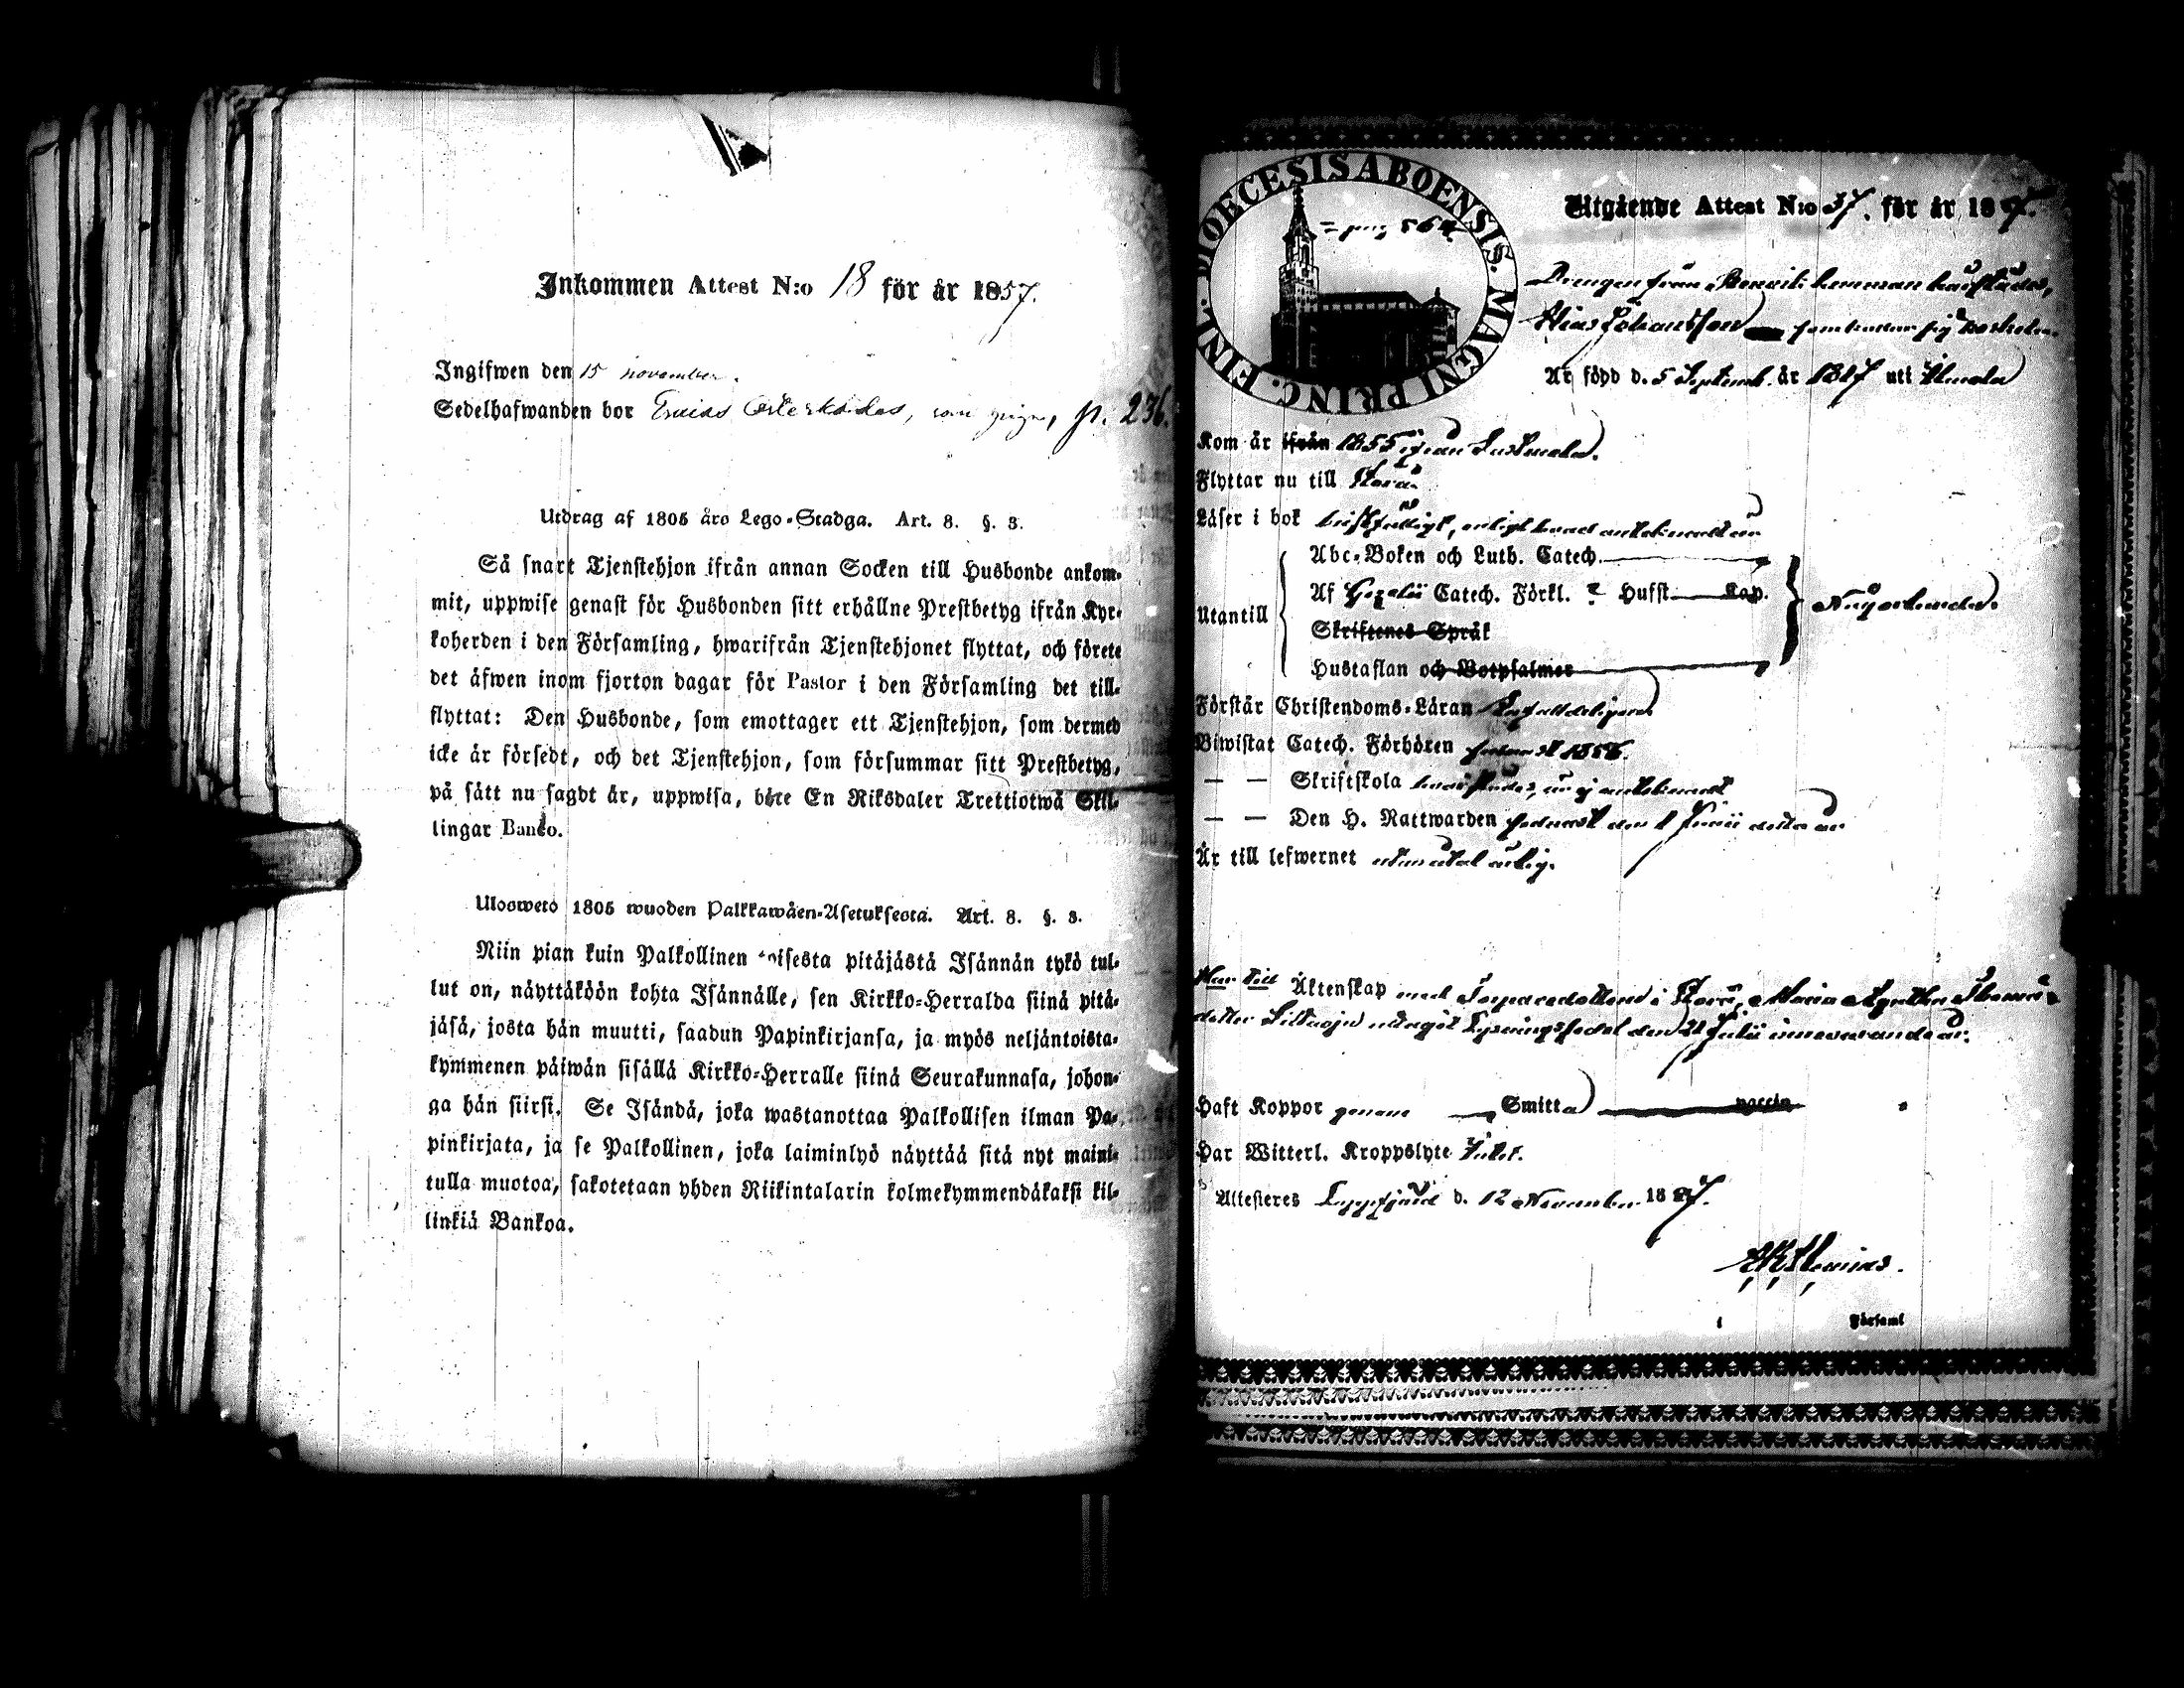 Inkommen Attest N:o 18 för år 1857.
Ingifwen den 15 november.
Sedelhafwanden bor p. 236.
Utdrag af 1805 års Lego-Stadga. Art. 8. §. 3.
Så snart Tjenstehjon ifrån annan Socken till Husbonde ankom-
mit, uppwise genast för Husbonden sitt erhållne Prestbetyg ifrån Kyr-
koherden i den Församling, hwarifrån Tjenstehjonet flyttat, och förete
det äfwen inom fjorton dagar för Pastor i den Församling det till-
flyttat: Den Husbonde, som emottager ett Tjenstehjon, som dermed
icke är försedt, och det Tjenstehjon, som försummar sitt Prestbetyg,
på sätt nu sagdt är, uppwisa, böte En Riksdaler Trettiotwå Skil-
lingar Banco.
Ulosweto 1805 wuoden Palkkawäen-Asetuksesta. Art. 8. §. 3.
Niin pian kuin Palkollinen toisesta pitäjästä Isännän tykö tul-
lut on, näyttäköön kohta Isännälle, sen Kirkko-Herralda siinä pitä-
jäsä, josta hän muutti, saadun Papinkirjansa, ja myös neljäntoista-
kymmenen päiwän sisällä Kirkko-Herralle siinä Seurakunnasa, johon-
ga hän siirsi. Se Isändä, joka wastanottaa Palkollisen ilman Pa-
pinkirjata, ja se Palkollinen, joka laiminlyö näyttää sitä nyt maini-
tulla muotoa, sakotetaan yhden Riikintalarin kolmekymmendäkaksi kil-
linkiä Bankoa.
DIOECESIS ABOENSIS. MAGNI PRINC. FINL.
pag 564
Utgående Attest N:o 37. för år 1857.
Drengen från hemman
Elias Johansson
Är född d. 5 Septemb. år 1827 uti Ilmola
Kom år ifrån 1855 ifrån
Flyttar nu till Storå
Läser i bok
Abc-Boken och Luth. Catech.
Utantill Af Gezelii Catech. Förkl. Husst. Kap. Någorlunda.
Skriftenes Språk
Hustaflan och Botpsalmer
Förstår Christendoms-Läran
Biwistat Catech. Förhören 1856.
— — Skriftskola
— — Den H. Nattwarden sednast den 1 Junii detta år
Är till lefwernet
Äktenskap med i Storå, Maria
den 21 Julii innevarande år.
Haft Koppor genom Smitta vaccin
Har Witterl. Kroppslyte Intet.
Attesteres Lappfjärd d. 12 November 1857.
Församl